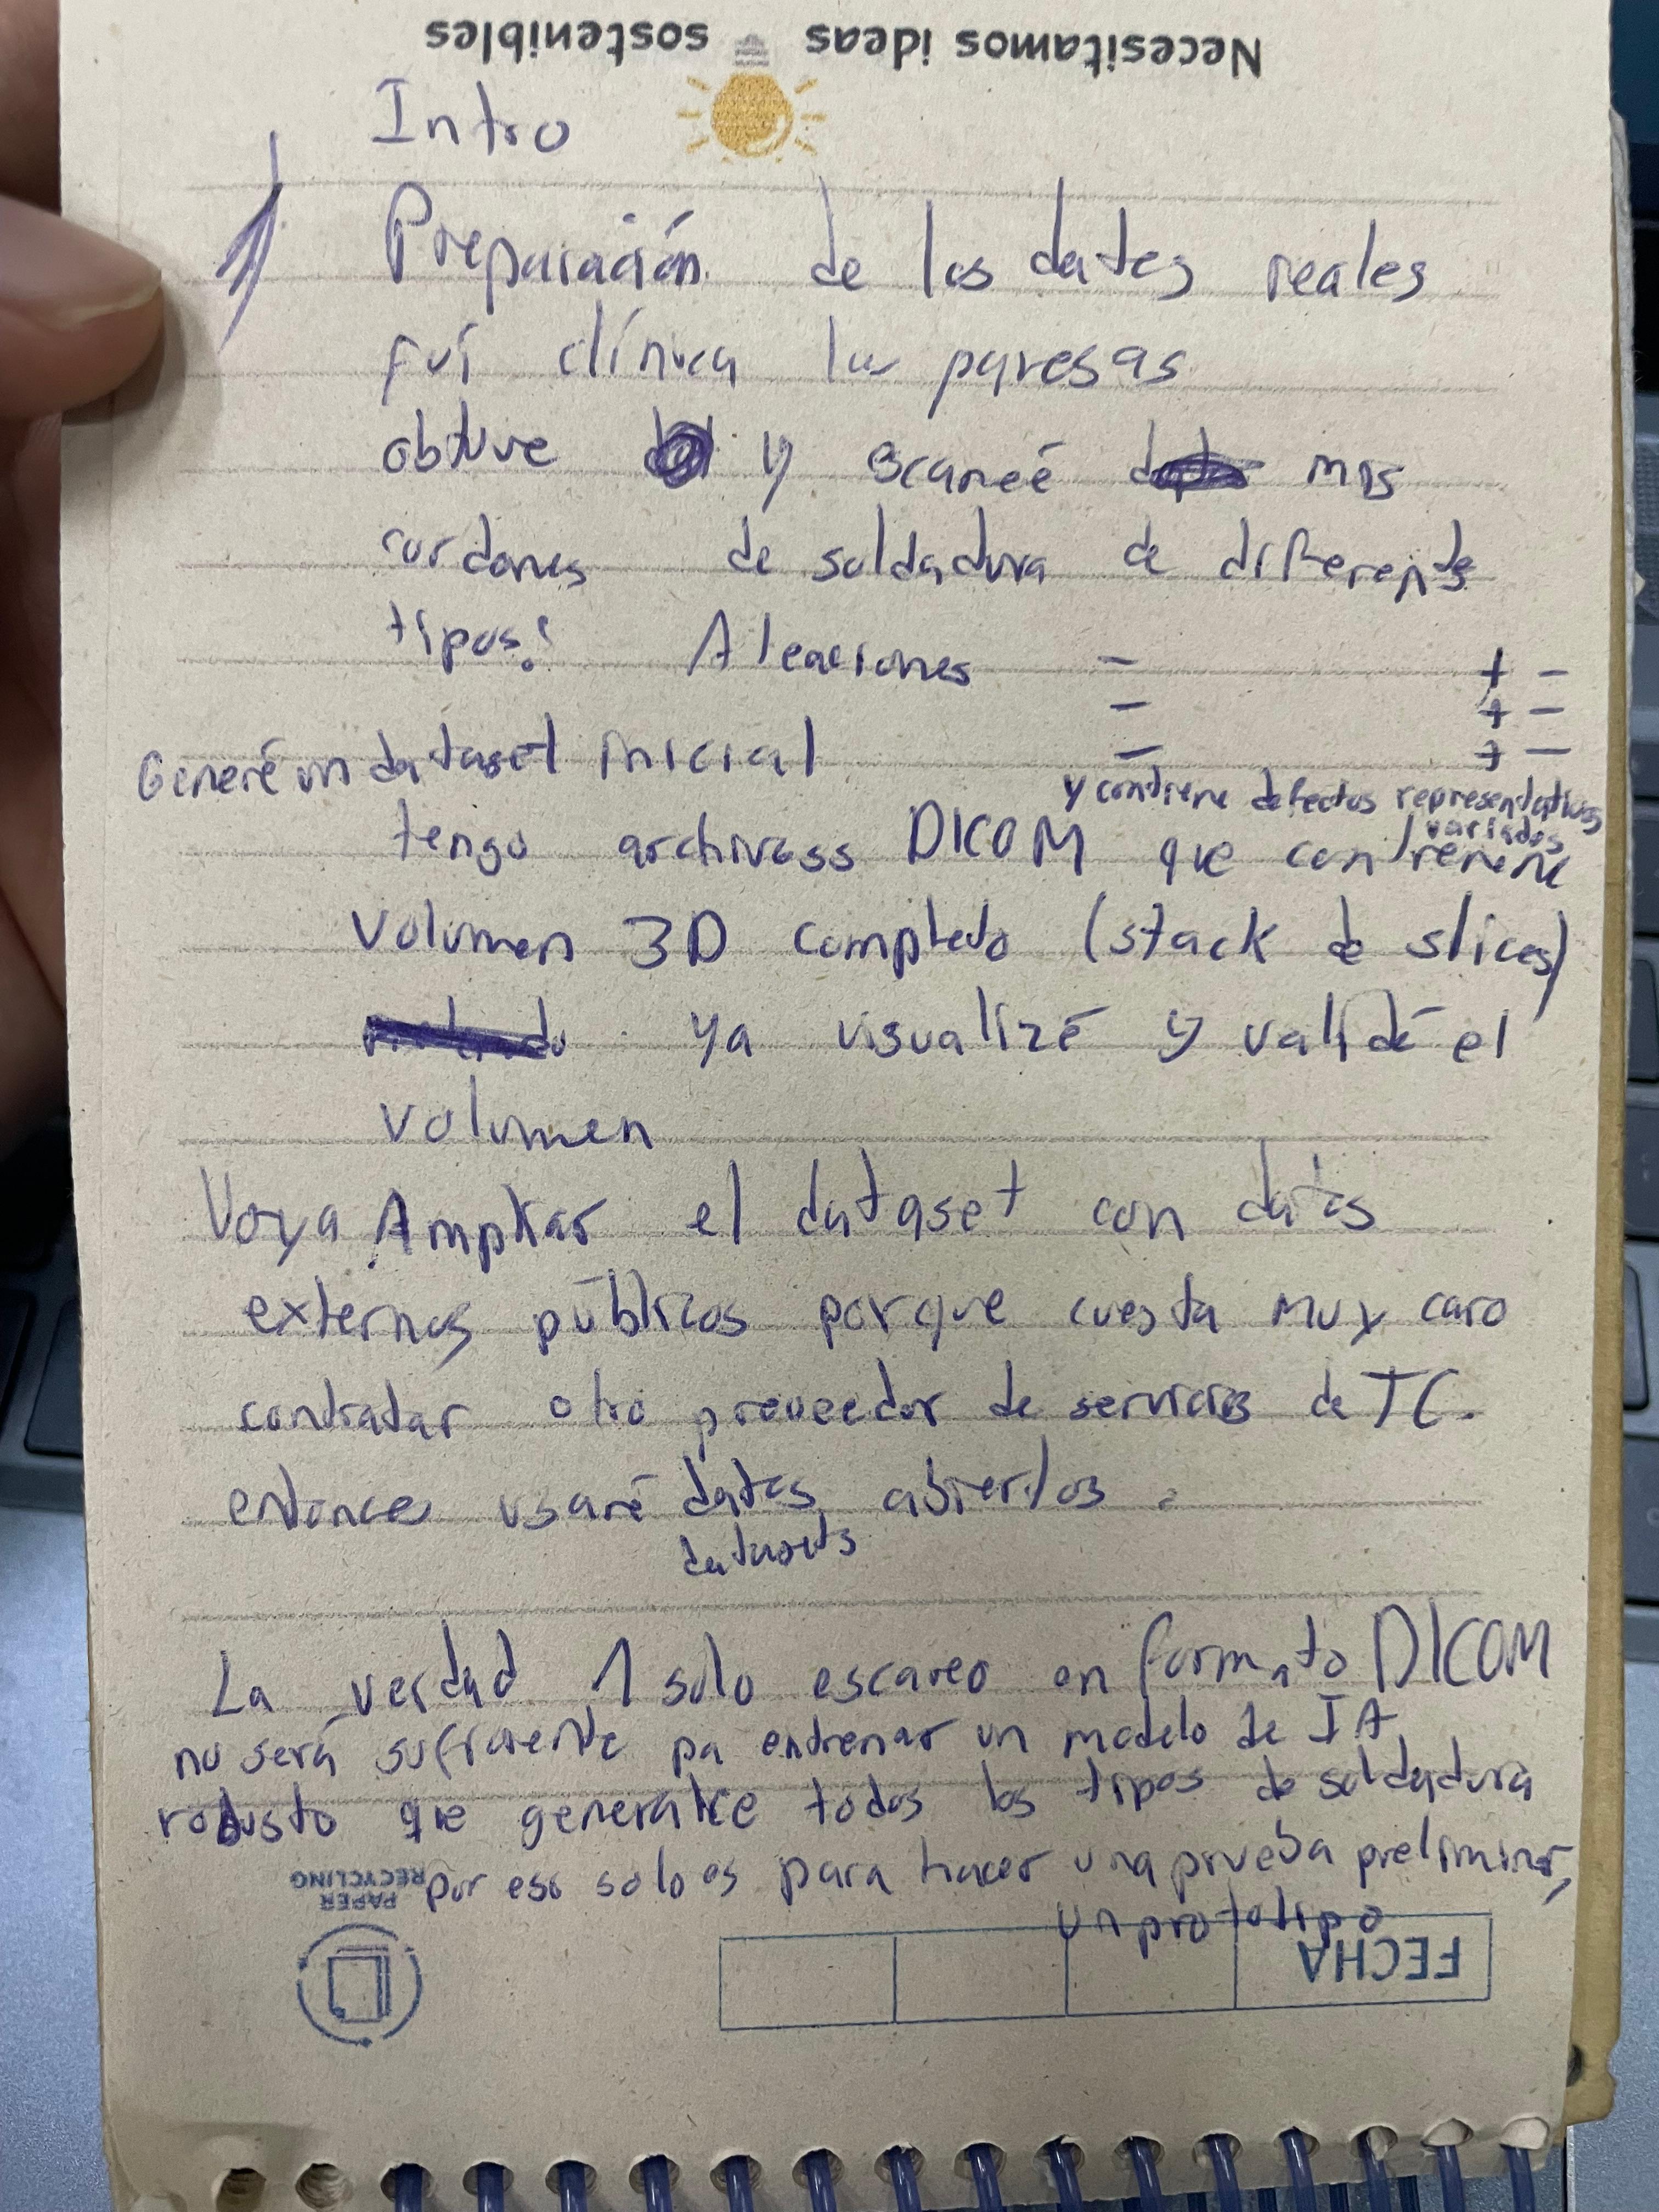 Necesitamos ideas sostenibles
Intro
1) Preparación de los datos reales
fuí clínica las paresas
obtuve y escaneé mis
cordones de soldadura de diferentes
tipos: Aleaciones - + -
- + -
- + -
Generé un dataset inicial
y contiene defectos representativos
variados
tengo archivoss DICOM que contienene
volumen 3D completo (stack de slices)
ya visualizé y validé el
volumen
Voy a Ampliar el dataset con datos
externos públicos porque cuesta muy caro
contratar otro proveedor de servicios de TC.
entonces usaré datos abiertos.
datasets
La verdad 1 solo escaneo en formato DICOM
no será suficiente pa entrenar un modelo de IA
robusto que generalice todos los tipos de soldadura
por eso solo es para hacer una prueba preliminar,
un prototipo
PAPER
RECYCLING
FECHA